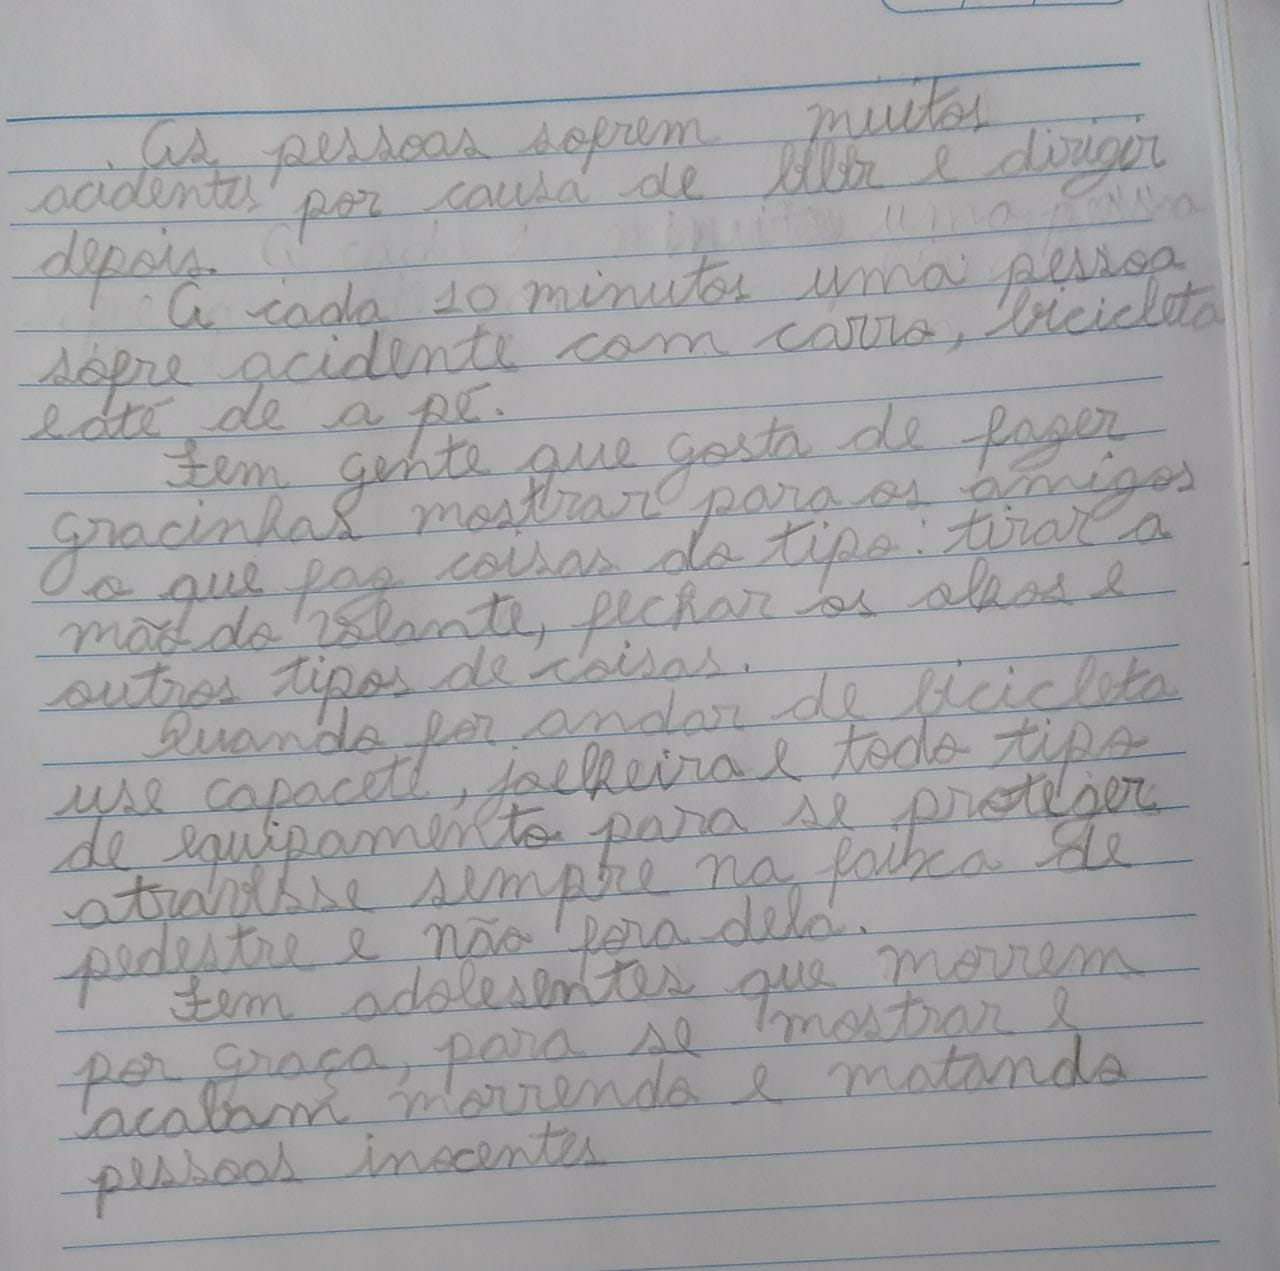 As pessoas sofrem muitos
acidentes por causa de beber e dirigir
depois.
A cada 10 minutos uma pessoa
sofre acidente com carro, bicicleta
e até de a pé.
Tem gente que gosta de fazer
gracinhas mostrar para os amigos
o que faz coisas do tipo: tirar a
mão do volante, fechar os olhos e
outros tipos de coisas.
Quando for andar de bicicleta
use capacete, joelheira e todo tipo
de equipamento para se proteger
atravesse sempre na faixca de
pedestre e não fora dela.
Tem adolesentes que morrem
por graça, para se mostrar e
acabam morrendo e matando
pessoas inocentes